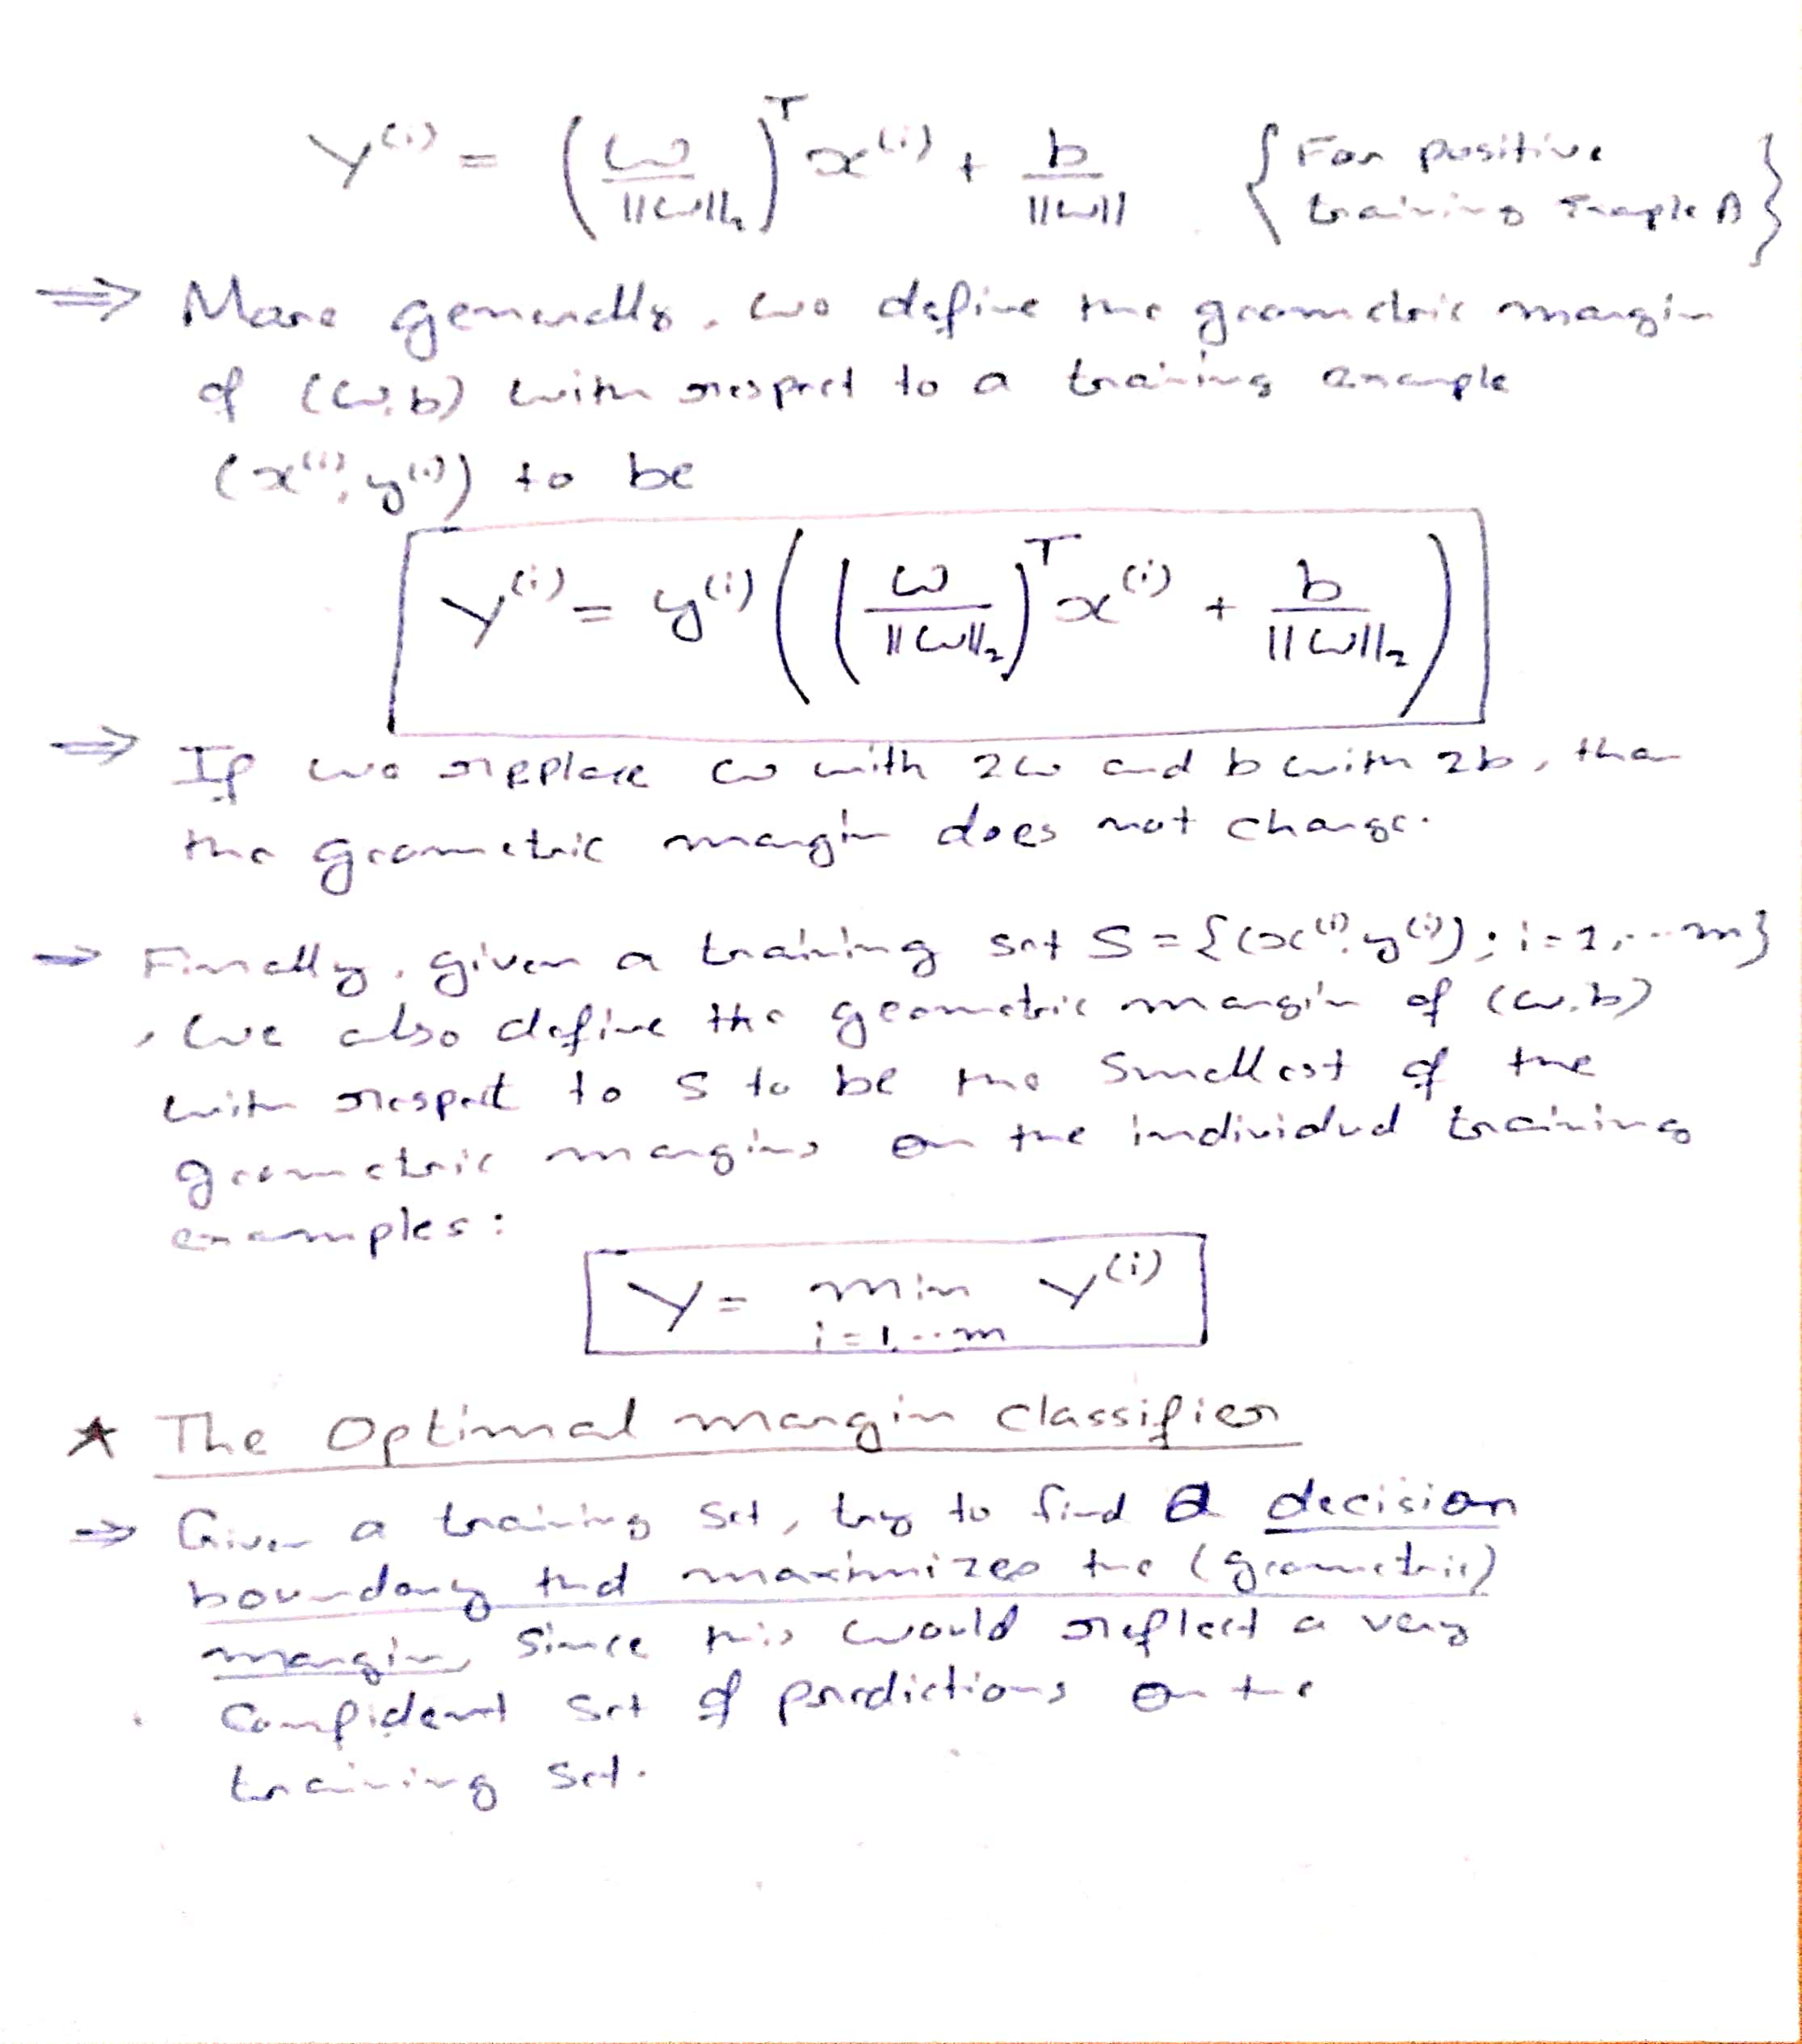 γ⁽ⁱ⁾ = (ω/||ω||₂)ᵀ x⁽ⁱ⁾ + b/||ω|| {For positive training example A}
⇒ More generally, we define the geometric margin
of (ω,b) with respect to a training example
(x⁽ⁱ⁾, y⁽ⁱ⁾) to be
γ⁽ⁱ⁾ = y⁽ⁱ⁾((ω/||ω||₂)ᵀ x⁽ⁱ⁾ + b/||ω||₂)
⇒ If we replace ω with 2ω and b with 2b, then
the geometric margin does not change.
⇒ Finally, given a training set S = {(x⁽ⁱ⁾, y⁽ⁱ⁾); i=1,...m}
, we also define the geometric margin of (ω,b)
with respect to S to be the smallest of the
geometric margins on the individual training
examples:
γ = min γ⁽ⁱ⁾
i=1,...m
★ The Optimal margin classifier
⇒ Given a training set, try to find a decision
boundary that maximizes the (geometric)
margin, since this would reflect a very
confident set of predictions on the
training set.